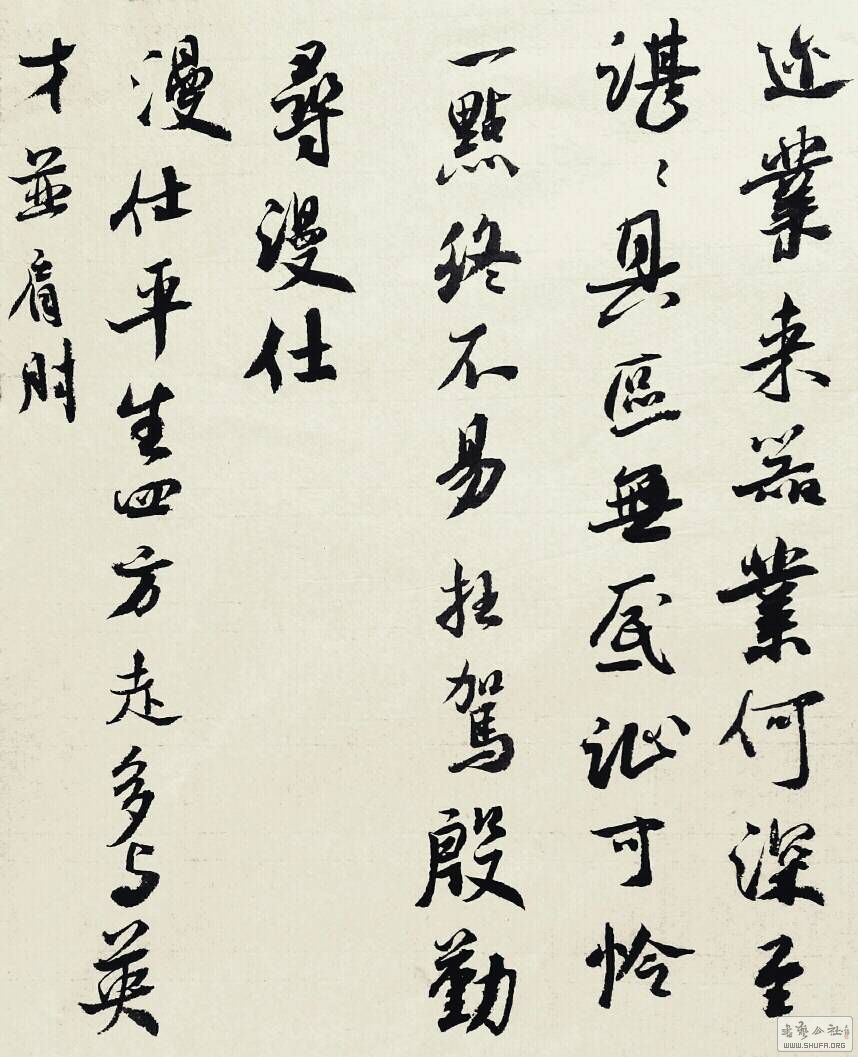 迩業来器業何深至
湛〻具區無底沚可怜
一點終不易枉駕殷勤
尋漫仕
漫仕平生四方走多与英
才並肩肘
書藝公社
WWW.SHUFA.ORG